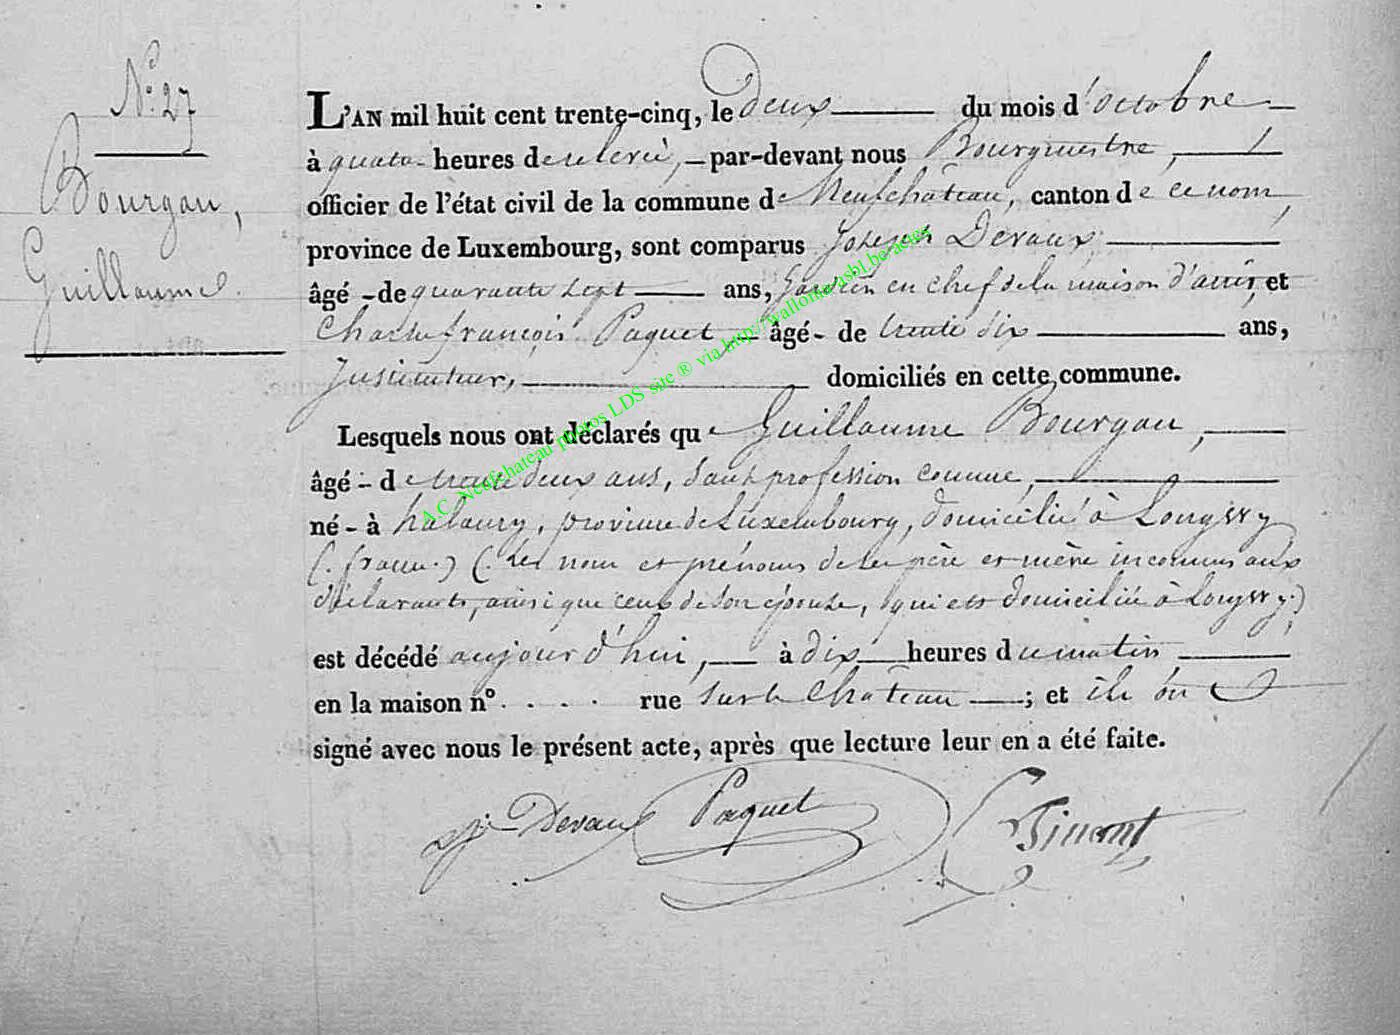 N° 27
Bourgau,
Guillaume.
L'AN mil huit cent trente-cinq, le deux du mois d'octobre
à quatre heures de relevée, par-devant nous Bourgmestre,
officier de l'état civil de la commune de Neufchâteau, canton de ce nom,
province de Luxembourg, sont comparus Joseph Devaux,
âgé - de quarante sept ans, Gardien en chef de la maison d'arrêt, et
Charles françois Paquet âgé - de trente six ans,
Instituteur, domiciliés en cette commune.
Lesquels nous ont déclarés que Guillaume Bourgau,
âgé - de trente deux ans, sans profession connue,
né - à halanzy, province de Luxembourg, domicilié à Longwy
(. france.) (. les nom et prénoms de ses père et mère inconnus aux
déclarants, ainsi que ceux de son épouse, qui est domiciliée à Longwy.)
est décédé aujourd'hui, à dix heures du matin,
en la maison n° . . . . rue sur le Château ; et ils ont
signé avec nous le présent acte, après que lecture leur en a été faite.
Devaux Paquet
A.C. Neufchateau photos LDS site ® via http://wallonia-asbl.be/actes